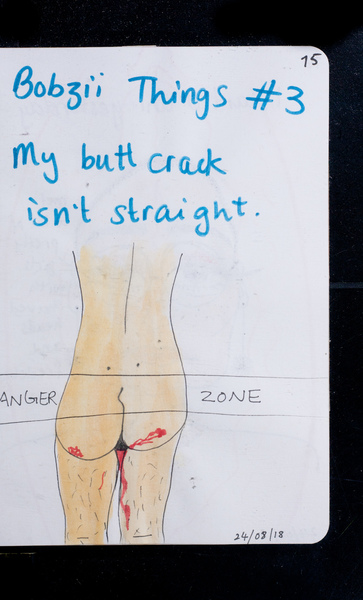 15
Bobzii Things #3
My butt crack
isn't straight.
ANGER ZONE
24/08/18